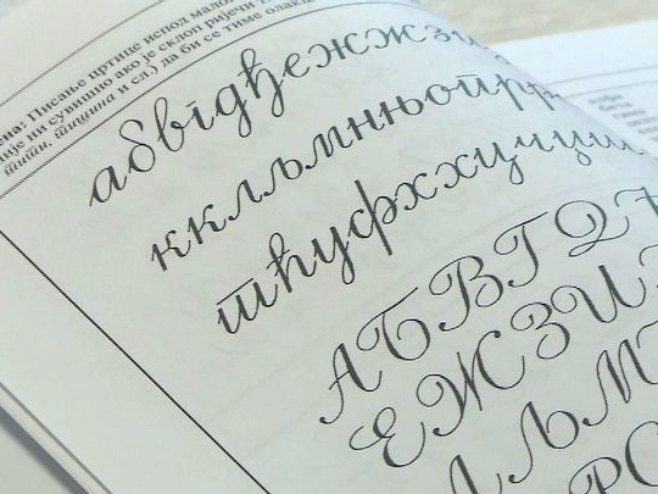 ена: Писање цртице испод мало
није ни сувишно ако је склоп ријечи
шити, тишина и сл.) да би се тиме олакш
абвгдђежжзи
кклљмнњопрр
тћуфххцчџш
АБВГДЂ
ЕЖЗИ
ЉМ
РС